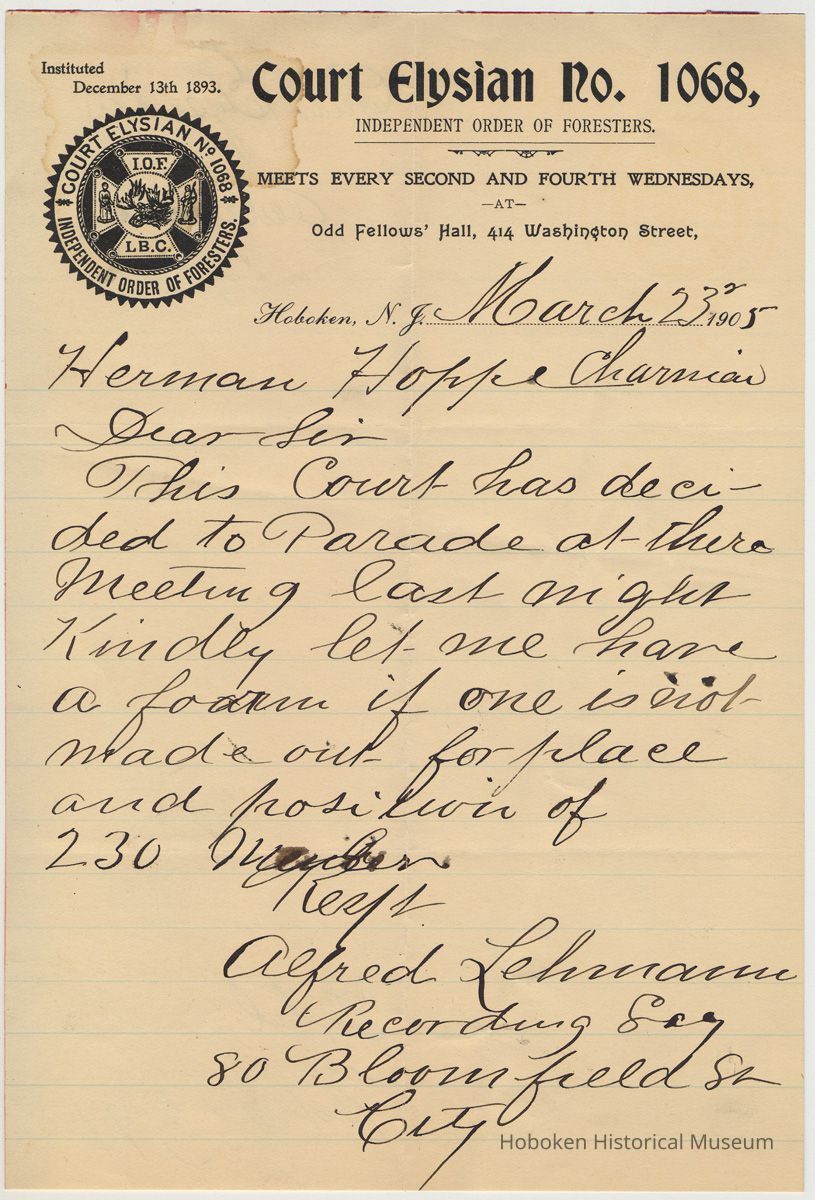 Instituted
December 13th 1893.
Court Elysian No. 1068,
INDEPENDENT ORDER OF FORESTERS.
MEETS EVERY SECOND AND FOURTH WEDNESDAYS,
—AT—
Odd Fellows' Hall, 414 Washington Street,
COURT ELYSIAN No 1068
I.O.F.
L.B.C.
INDEPENDENT ORDER OF FORESTERS.
Hoboken, N. J. March 23 1905
Herman Hoppe Charmian
Dear Sir
This Court has deci-
ded to Parade at there
Meeting last night
Kindly let me have
a foarm if one is not
made out for place
and position of
230 Members
Respt
Alfred Lehmann
Recording Secy
80 Bloomfield St
City
Hoboken Historical Museum